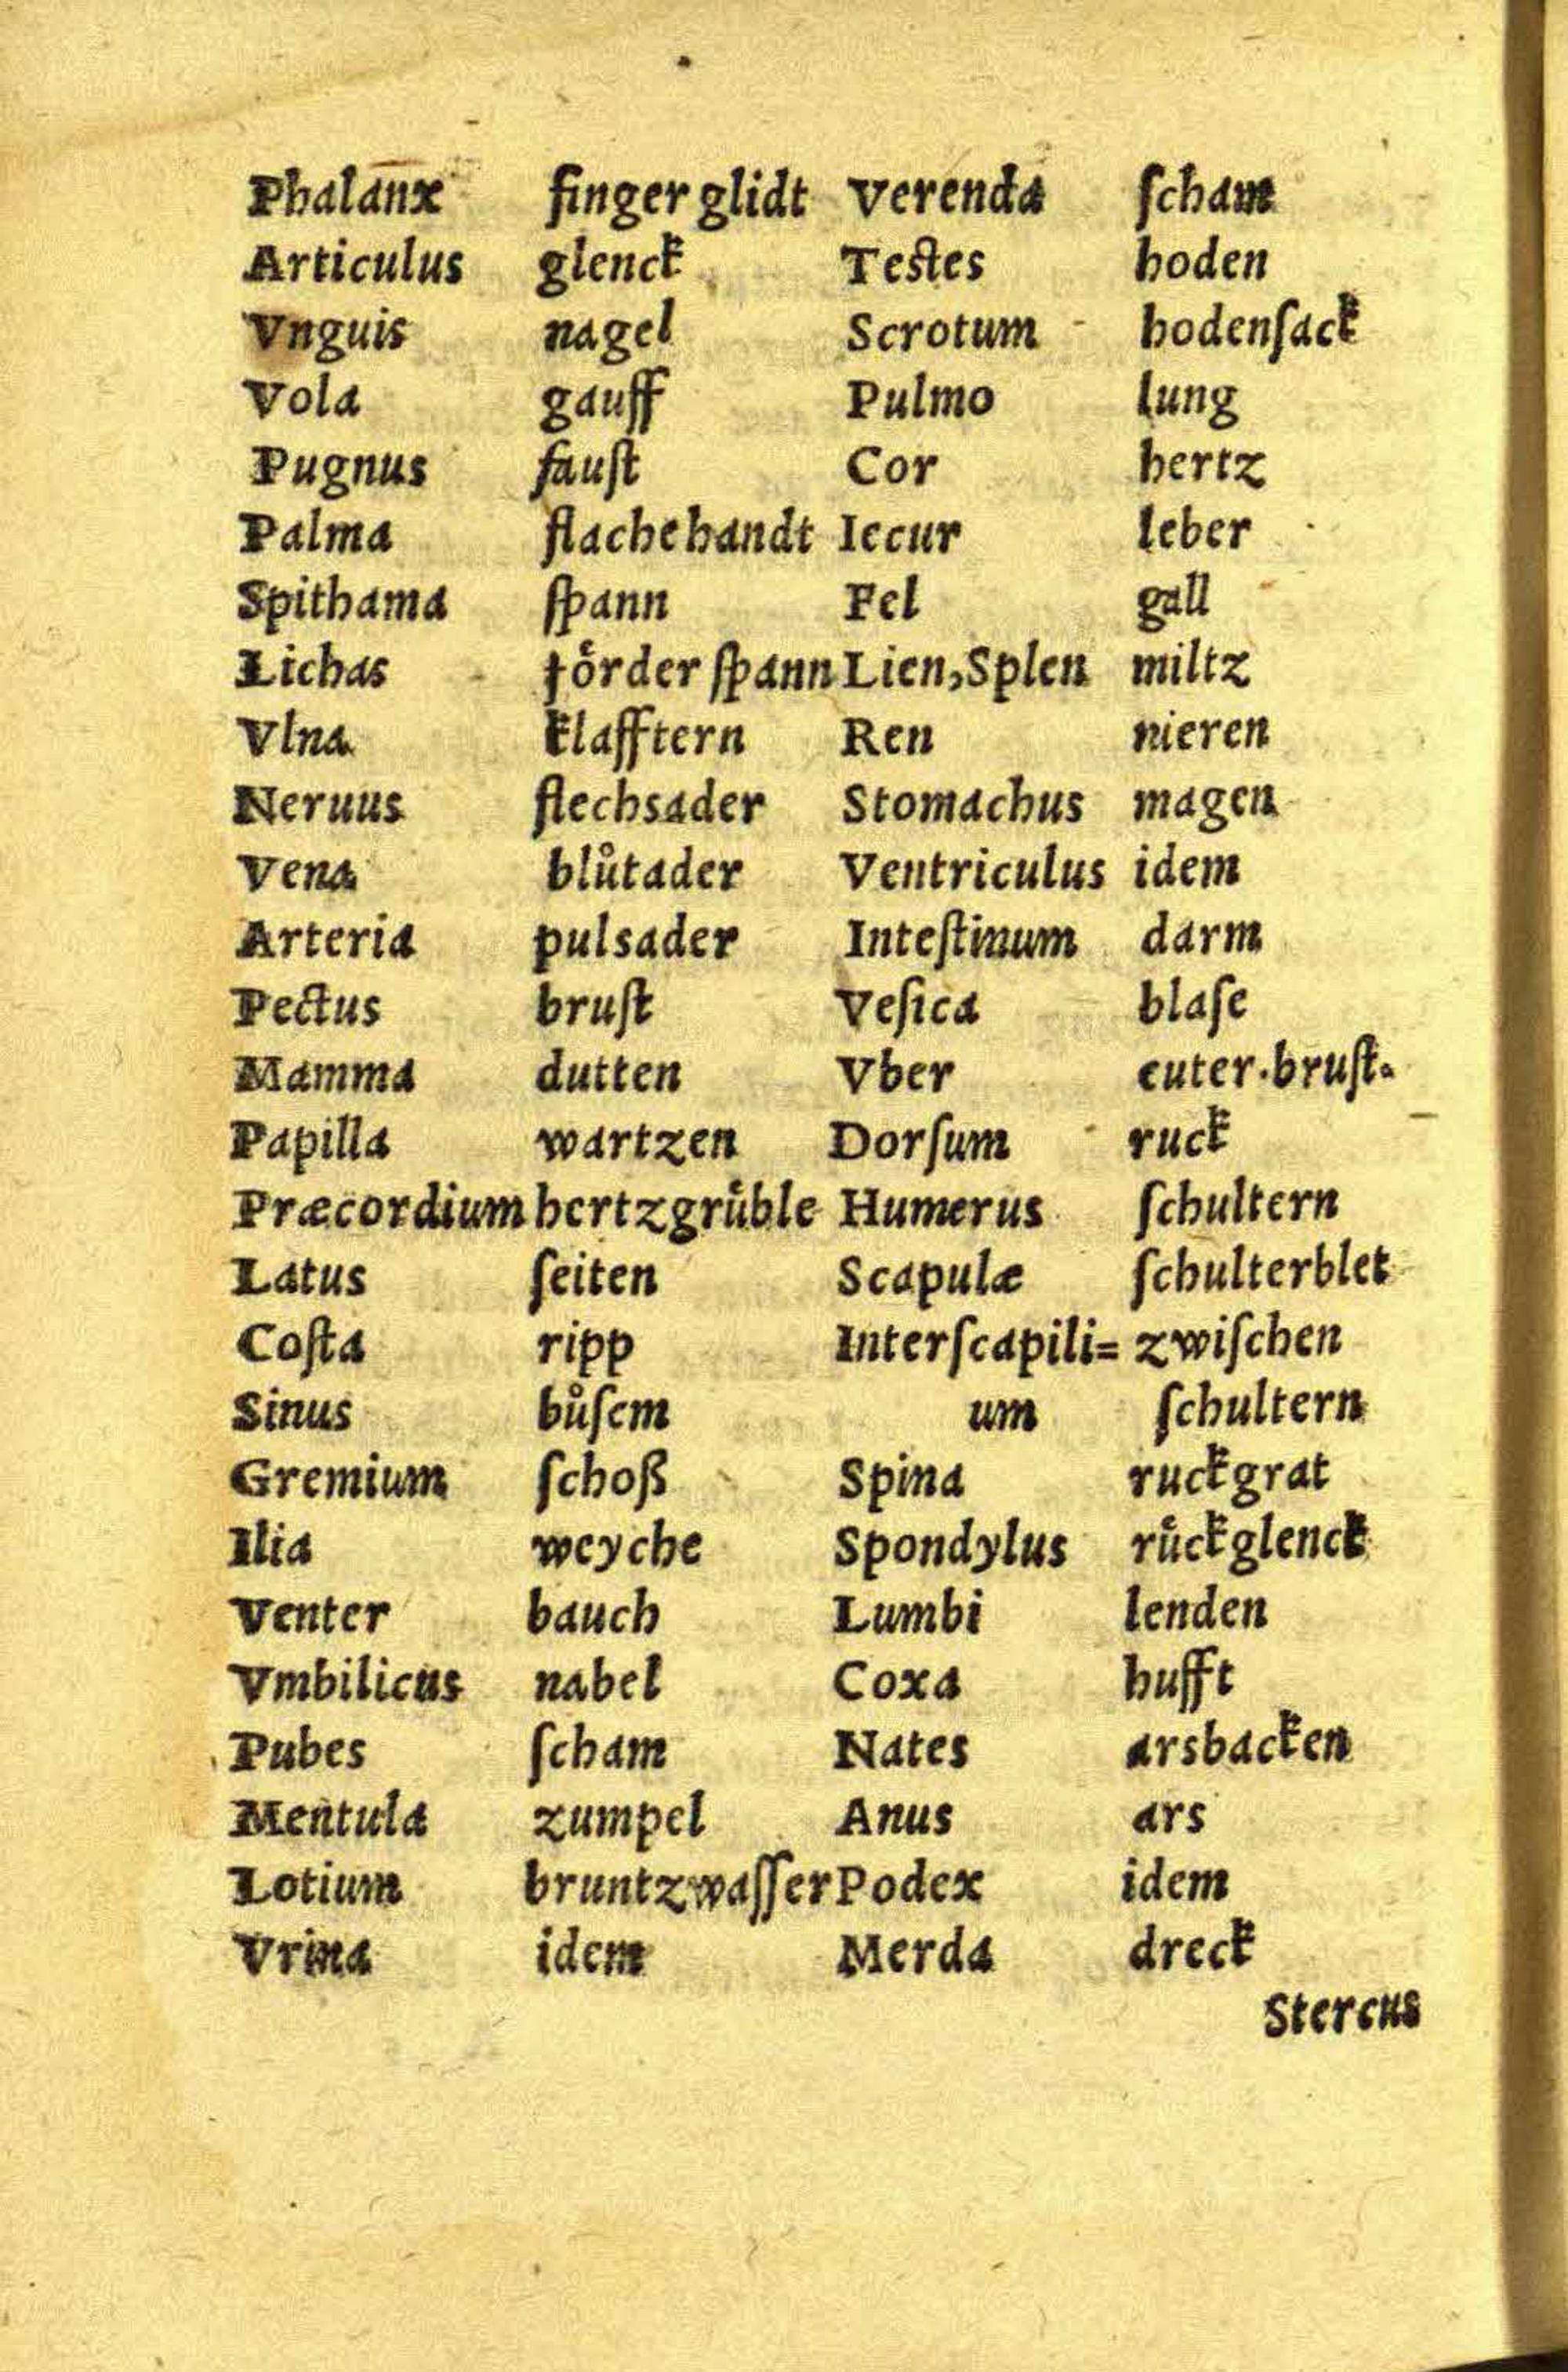 Phalanx finger glidt
Articulus glenck
Vnguis nagel
Vola gauff
Pugnus fauſt
Palma flache handt
Spithama ſpann
Lichas foͤrder ſpann
Vlna klafftern
Neruus flechsader
Vena blůtader
Arteria pulsader
Pectus bruſt
Mamma dutten
Papilla wartzen
Præcordium hertzgruͤble
Latus ſeiten
Coſta ripp
Sinus bůſem
Gremium ſchoß
Ilia weyche
Venter bauch
Vmbilicus nabel
Pubes ſcham
Mentula zumpel
Lotium bruntzwaſſer
Vrina idem
Verenda ſcham
Teſtes hoden
Scrotum hodenſack
Pulmo lung
Cor hertz
Iecur leber
Fel gall
Lien, Splen miltz
Ren nieren
Stomachus magen
Ventriculus idem
Inteſtinum darm
Veſica blaſe
Vber euter. bruſt.
Dorſum ruck
Humerus ſchultern
Scapulæ ſchulterblet
Interſcapili= zwiſchen
um ſchultern
Spina ruckgrat
Spondylus ruͤckglenck
Lumbi lenden
Coxa hufft
Nates arsbacken
Anus ars
Podex idem
Merda dreck
Stercus